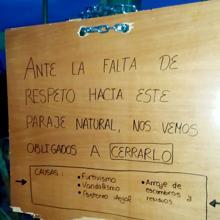 ANTE LA FALTA DE
RESPETO HACIA ESTE
PARAJE NATURAL, NOS VEMOS
OBLIGADOS A CERRARLO
CAUSAS:
• Furtivismo
• Vandalismo
• Pastoreo ilegal
• Arroje de
escombros y
residuos.